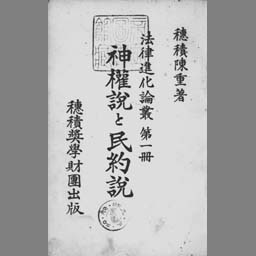 穂積陳重著
法律進化論叢 第一冊
神權說と民約說
穂積奬學財團出版